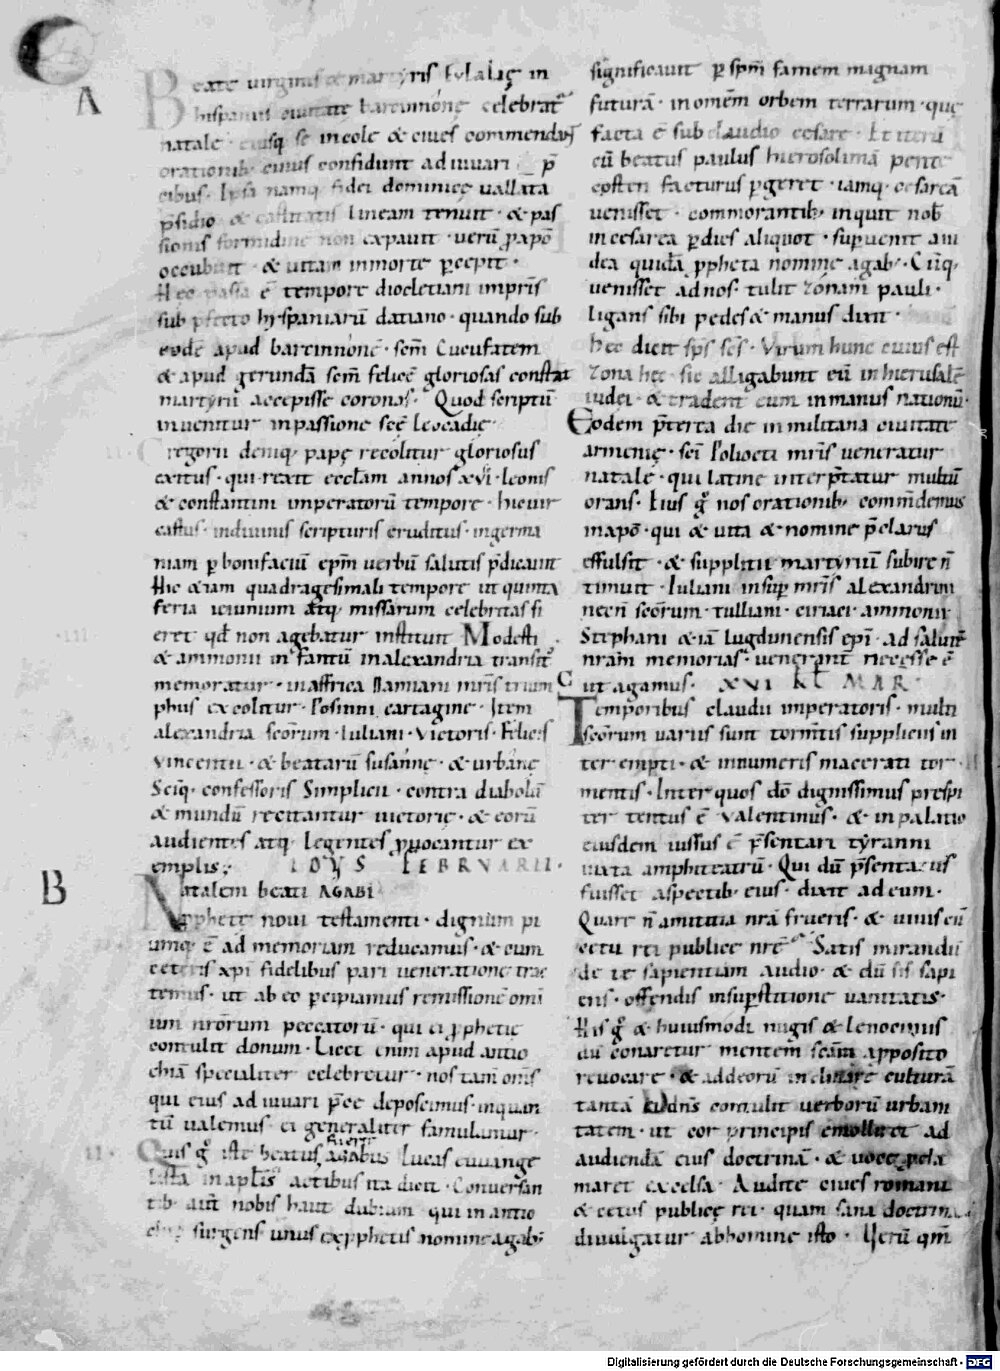 A
Beate virginis & martyris Eulalię in
hispaniis ciuitate barcinnone celebrat̄
natale · eiusq; se incolę & ciues commendant
orationib; eius confidunt adiuuari p̄
cibus· Ipsa namq; fidei dominicę uallata
p̄sidio · & castitatis lineam tenuit · & pas
sionis formidine non expauit · uerū ꝓ xp̄o
occubuit · & uitam inmorte ꝑcepit ·
Hęc passa ē tempore diocletiani imp̄ris
sub p̄fecto hyspaniarū datiano · quando sub
eodē apud barcinnonē · sc̄m Cucufatem
& apud gerundā sc̄m felicē gloriosas constat
martyrii accepisse coronas · Quod scriptū
inuenitur inpassione sc̄ę leocadię
Gregorii deniq; papę recolitur gloriosus
exitus · qui rexit eccl̄am annos xvi · leonis
& constantini imperatorū tempore · hic uir
castus · indiuinis scripturis eruditus · ingerma
niam ꝑ bonifaciū ep̄m uerbū salutis p̄dicauit
Hic etiam quadragesimali tempore ut quinta
feria ieiunium atq; missarum celebritas fi
eret qd̄ non agebatur instituit Modesti
& ammonii infantū inalexandria transit̄
memoratur · inaffrica Damiani mr̄is trium
phus excolitur · Posinni cartagine · Item
alexandria sc̄orum · Iuliani · Victoris · Felicis
vincentii · & beatarū susannę · & urbanę
Sc̄iq; confessoris Simplicii · contra diabolū
& mundū recitantur uictorię · & eorū
audientes atq; legentes ꝓuocantur ex
emplis; IDVS FEBRVARII ·
B
Natalem beati AGABI
ꝓphetę noui testamenti · dignum pi
umq; ē ad memoriam reducamus · & cum
ceteris xp̄i fidelibus pari ueneratione trac
temus · ut ab eo ꝑcipiamus remissionē omi
um nr̄orum peccatorū · qui ei ꝓphetię
contulit donum · Licet enim apud antio
chiā specialiter celebretur · nos tam̄ om̄s
qui eius adiuuari p̄ce deposcimus · inquan
tū ualemus · ei generaliter famulamur ·
Quis g̊ iste beatus fuerit agabus lucas euuange
lista in apl̄is actibus ita dicit · Conuersan
tib; aut̄ nobis haut dubium qui in antio
chia surgens unus ex ꝓphetis nomine agab;
significauit ꝑ sp̄m famem magnam
futurā · inomēm orbem terrarum · quę
facta ē sub claudio cesare · Et iterū
cū beatus paulus hierosolimā pente
costen facturus ꝑgeret · iamq; cesareā
uenisset · commorantib; inquit nob̄
incesarea ꝑ dies aliquot · suꝑuenit a iu
dea quidā ꝓpheta nomine agab; · Cūq;
uenisset ad nos · tulit zonam pauli ·
ligans sibi pedes & manus dixit ·
hęc dicit sp̄s sc̄s · Virum hunc cuius est
zona hęc · sic alligabunt eū in hierusalē
iudei · & tradent eum inmanus nationū ·
Eodem p̄terea die inmilitana ciuitate
armenię · sc̄i Poliocti mr̄is ueneratur
natale · qui latine interp̄tatur multū
orans · huius g̊ nos orationib; comm̄demus
inxp̄o · qui & uita & nomine p̄clarus
effulsit · & supplitii martyriū subire n̄
timuit · Iuliani insuꝑ mr̄is alexandrini
necn̄ sc̄orum · tulliani · ciriaci · ammonii ·
Stephani & iā lugdunensis ep̄i · ad salutē
nr̄am memorias · uenerant̄ necesse ē
C
ut agamus · XVI KL̄ MAR ·
Temporibus claudii imperatoris · multi
sc̄orum uariis sunt torm̄tis suppliciis in
terempti · & innumeris macerati tor
mentis · Inter quos dō dignissimus presbi
ter tentus ē Valentinus · & inpalatio
eiusdem iussus ē p̄sentari tyranni
iuxta amphiteatrū · Qui dū p̄sentatus
fuisset aspectib; eius · dixit ad eum ·
Quare n̄ amicitia nr̄a frueris · & uiuis cū
cętu rei publice nr̄ę · Satis mirandū
de te sapientiam audio · & dū sis sapi
ens · offendis insuꝑstitione uanitatis ·
His g̊ & huiusmodi nugis & lenociniis
dū conaretur mentem sc̄am apposito
reuocare · & ad deorū inclinare culturā
tantā ei dn̄s contulit uerborū urbani
tatem · ut cor principis emolliret ad
audiendā eius doctrinā · & uoce ꝓcla
maret excelsa · Audite ciues romani
& cetus publicę rei · quam sana doctrina
diuulgatur abhomine isto · Verū qm̄
Digitalisierung gefördert durch die Deutsche Forschungsgemeinschaft · DFG